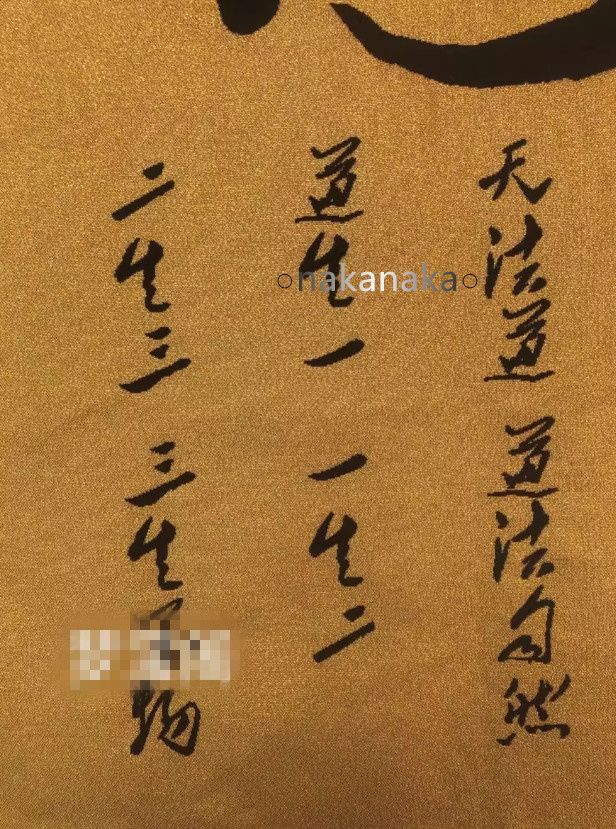 天法道 道法自然
道生一 一生二
二生三 三生 物
nakanaka